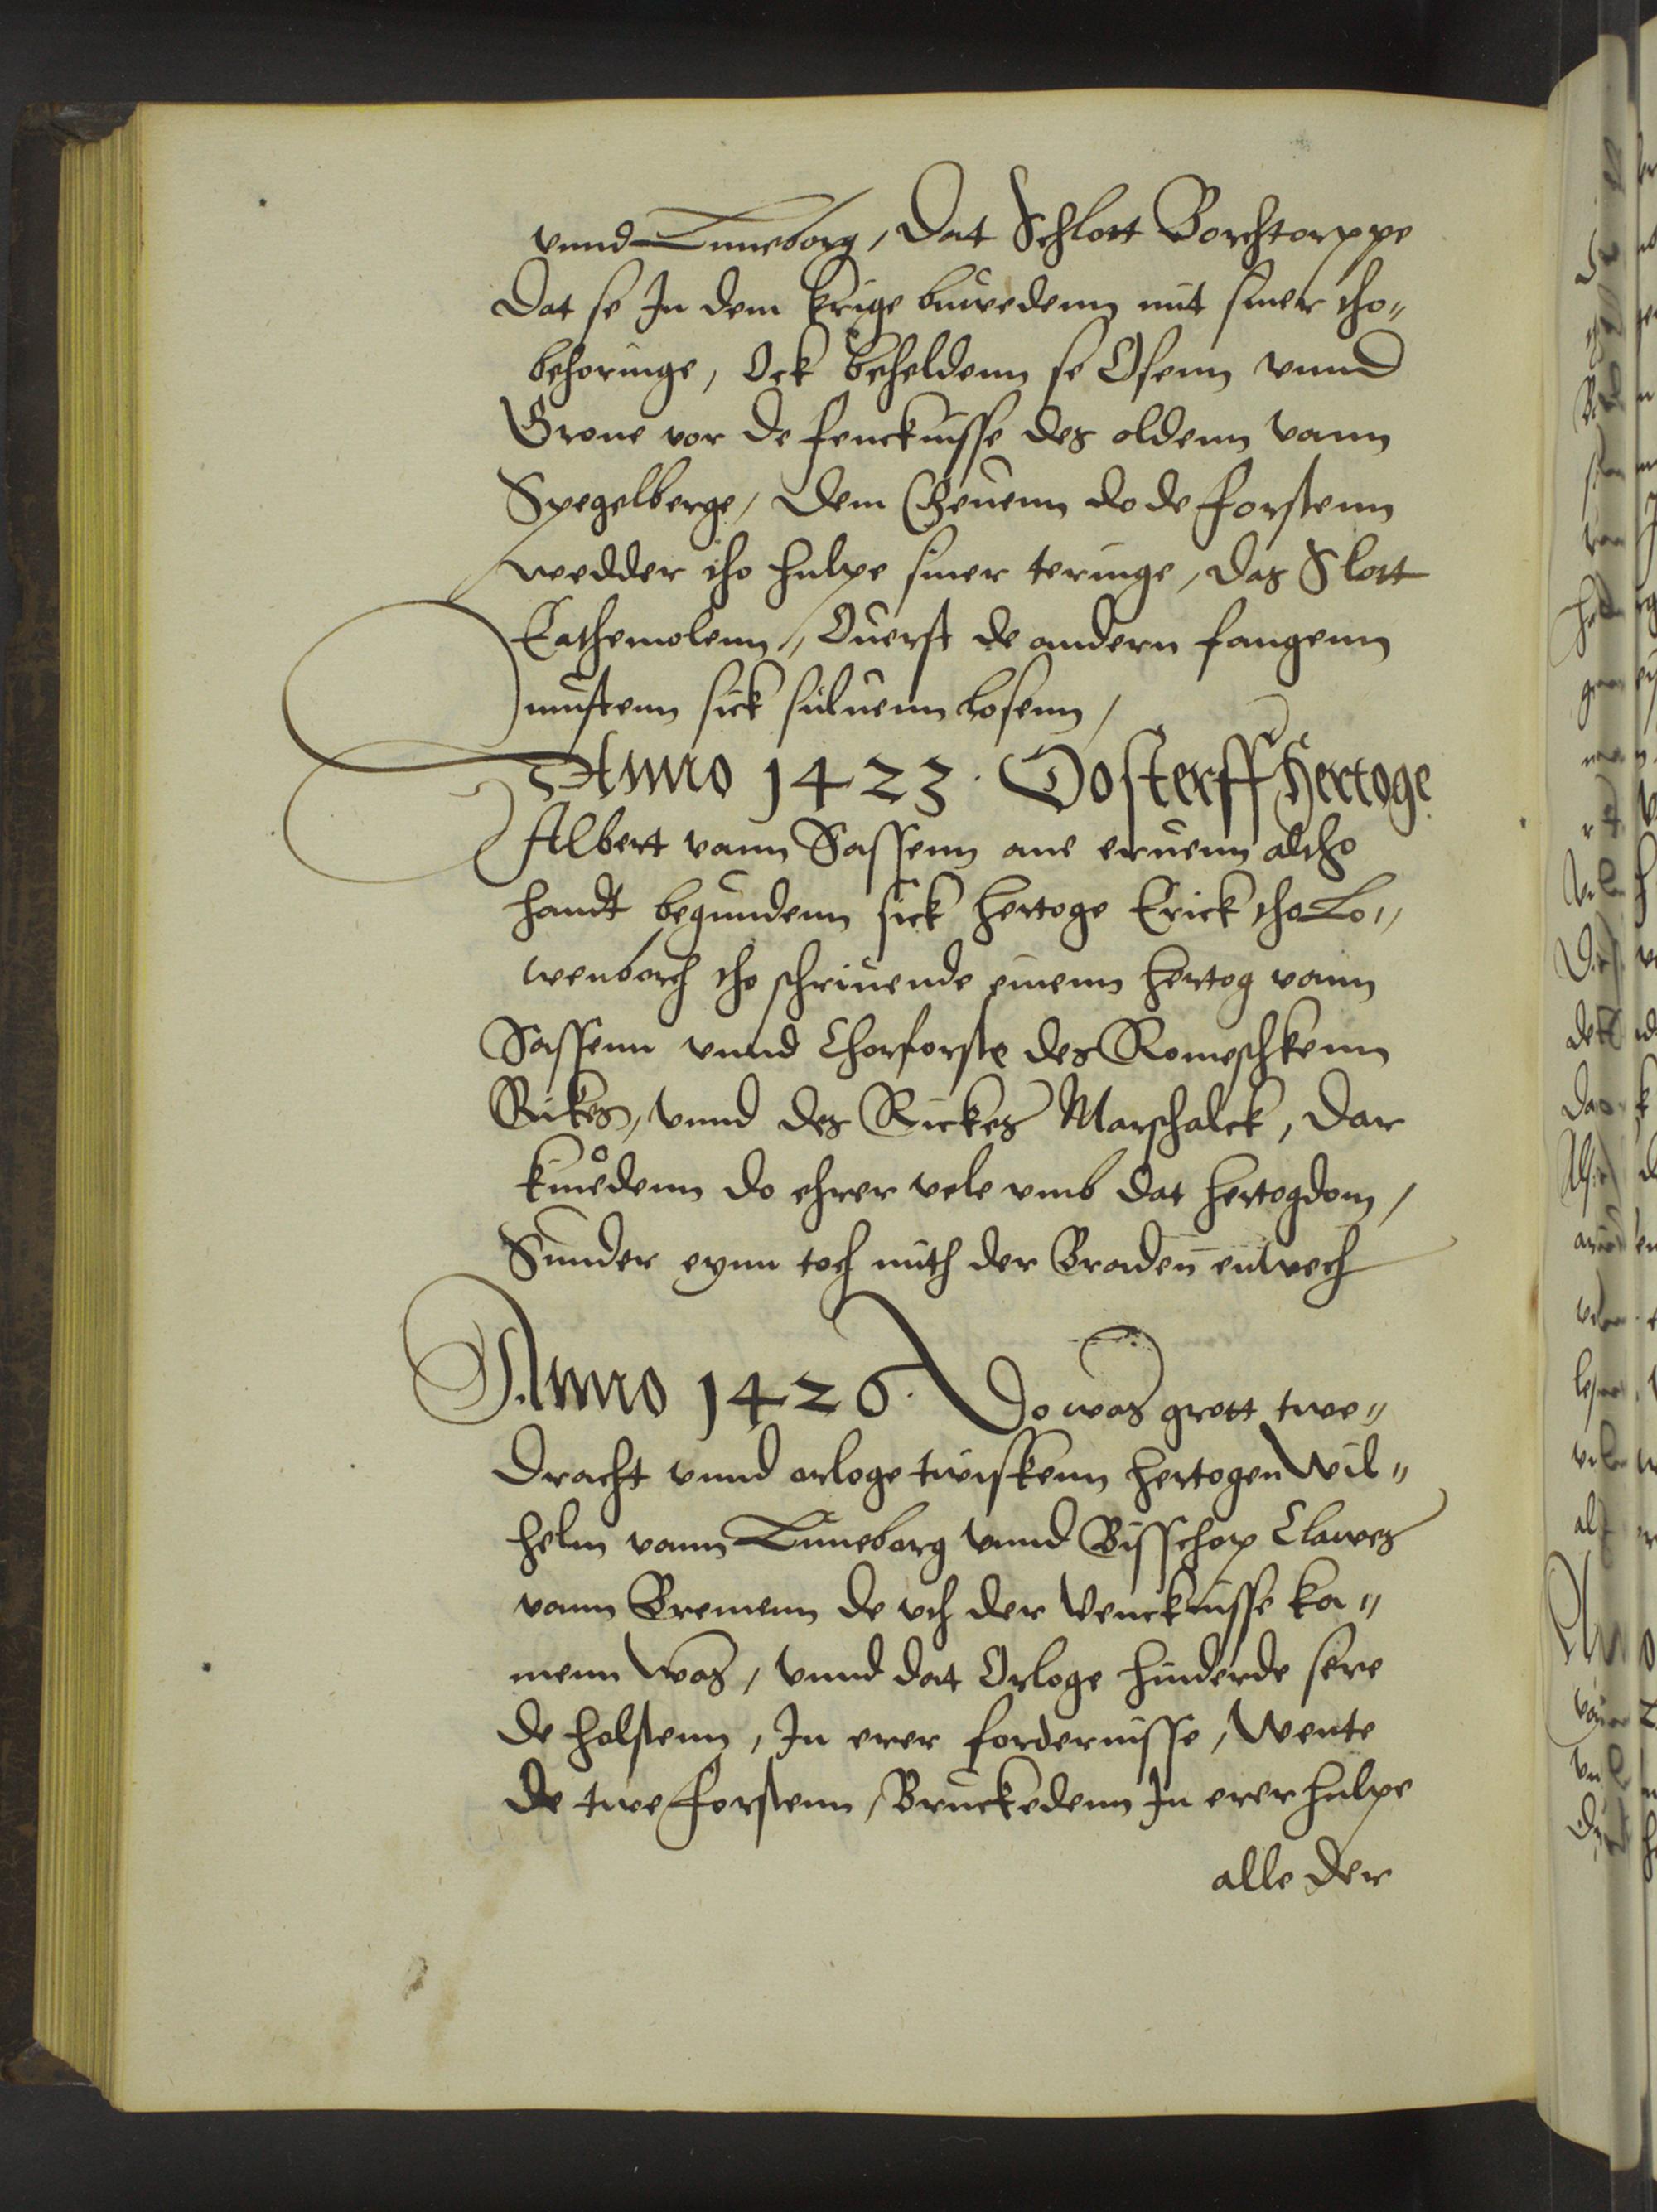 vnnd Luneborg, Dat Schlott Borchtorppe
Dat se In dem krige buwedenn mit siner tho„
behoringe, Ock beheldenn se Osenn vnnd
Grone vor de fencknisse des oldenn vann
Spegelberge, Dem Geuenn do de forstenn
wedder tho hulpe siner teringe, das Slott
Cathemolenn, Ouerst de andern fangenn
mustenn sick suluenn losenn,
Anno 1423. Do sterff Hertoge
Albert vann Sassenn ane eruenn altho
handt begundenn sick hertoge Erick tho Lo„
wenborch tho schriuende einenn hertog vann
Sassenn vnnd Chorforste des Romeschkenn
Rikes, vnnd des Rickes Marschalck, Dar
kiuedenn do ehrer vele vmb dat hertogdom,
Sunder eynn toch mith der Bradenn enwech
Anno 1426. Do was grott twe„
dracht vnnd orloge twiskenn hertogen Wil„
helm vann Luneborg vnnd Bisschop Clawes
vann Bremenn de vth der Vencknisse ka„
menn was, vnnd dat Orloge hinderde sere
de holstenn, In erer fordernisse, Wente
de twe forstenn, Bruckedenn In erer hulpe
alle der